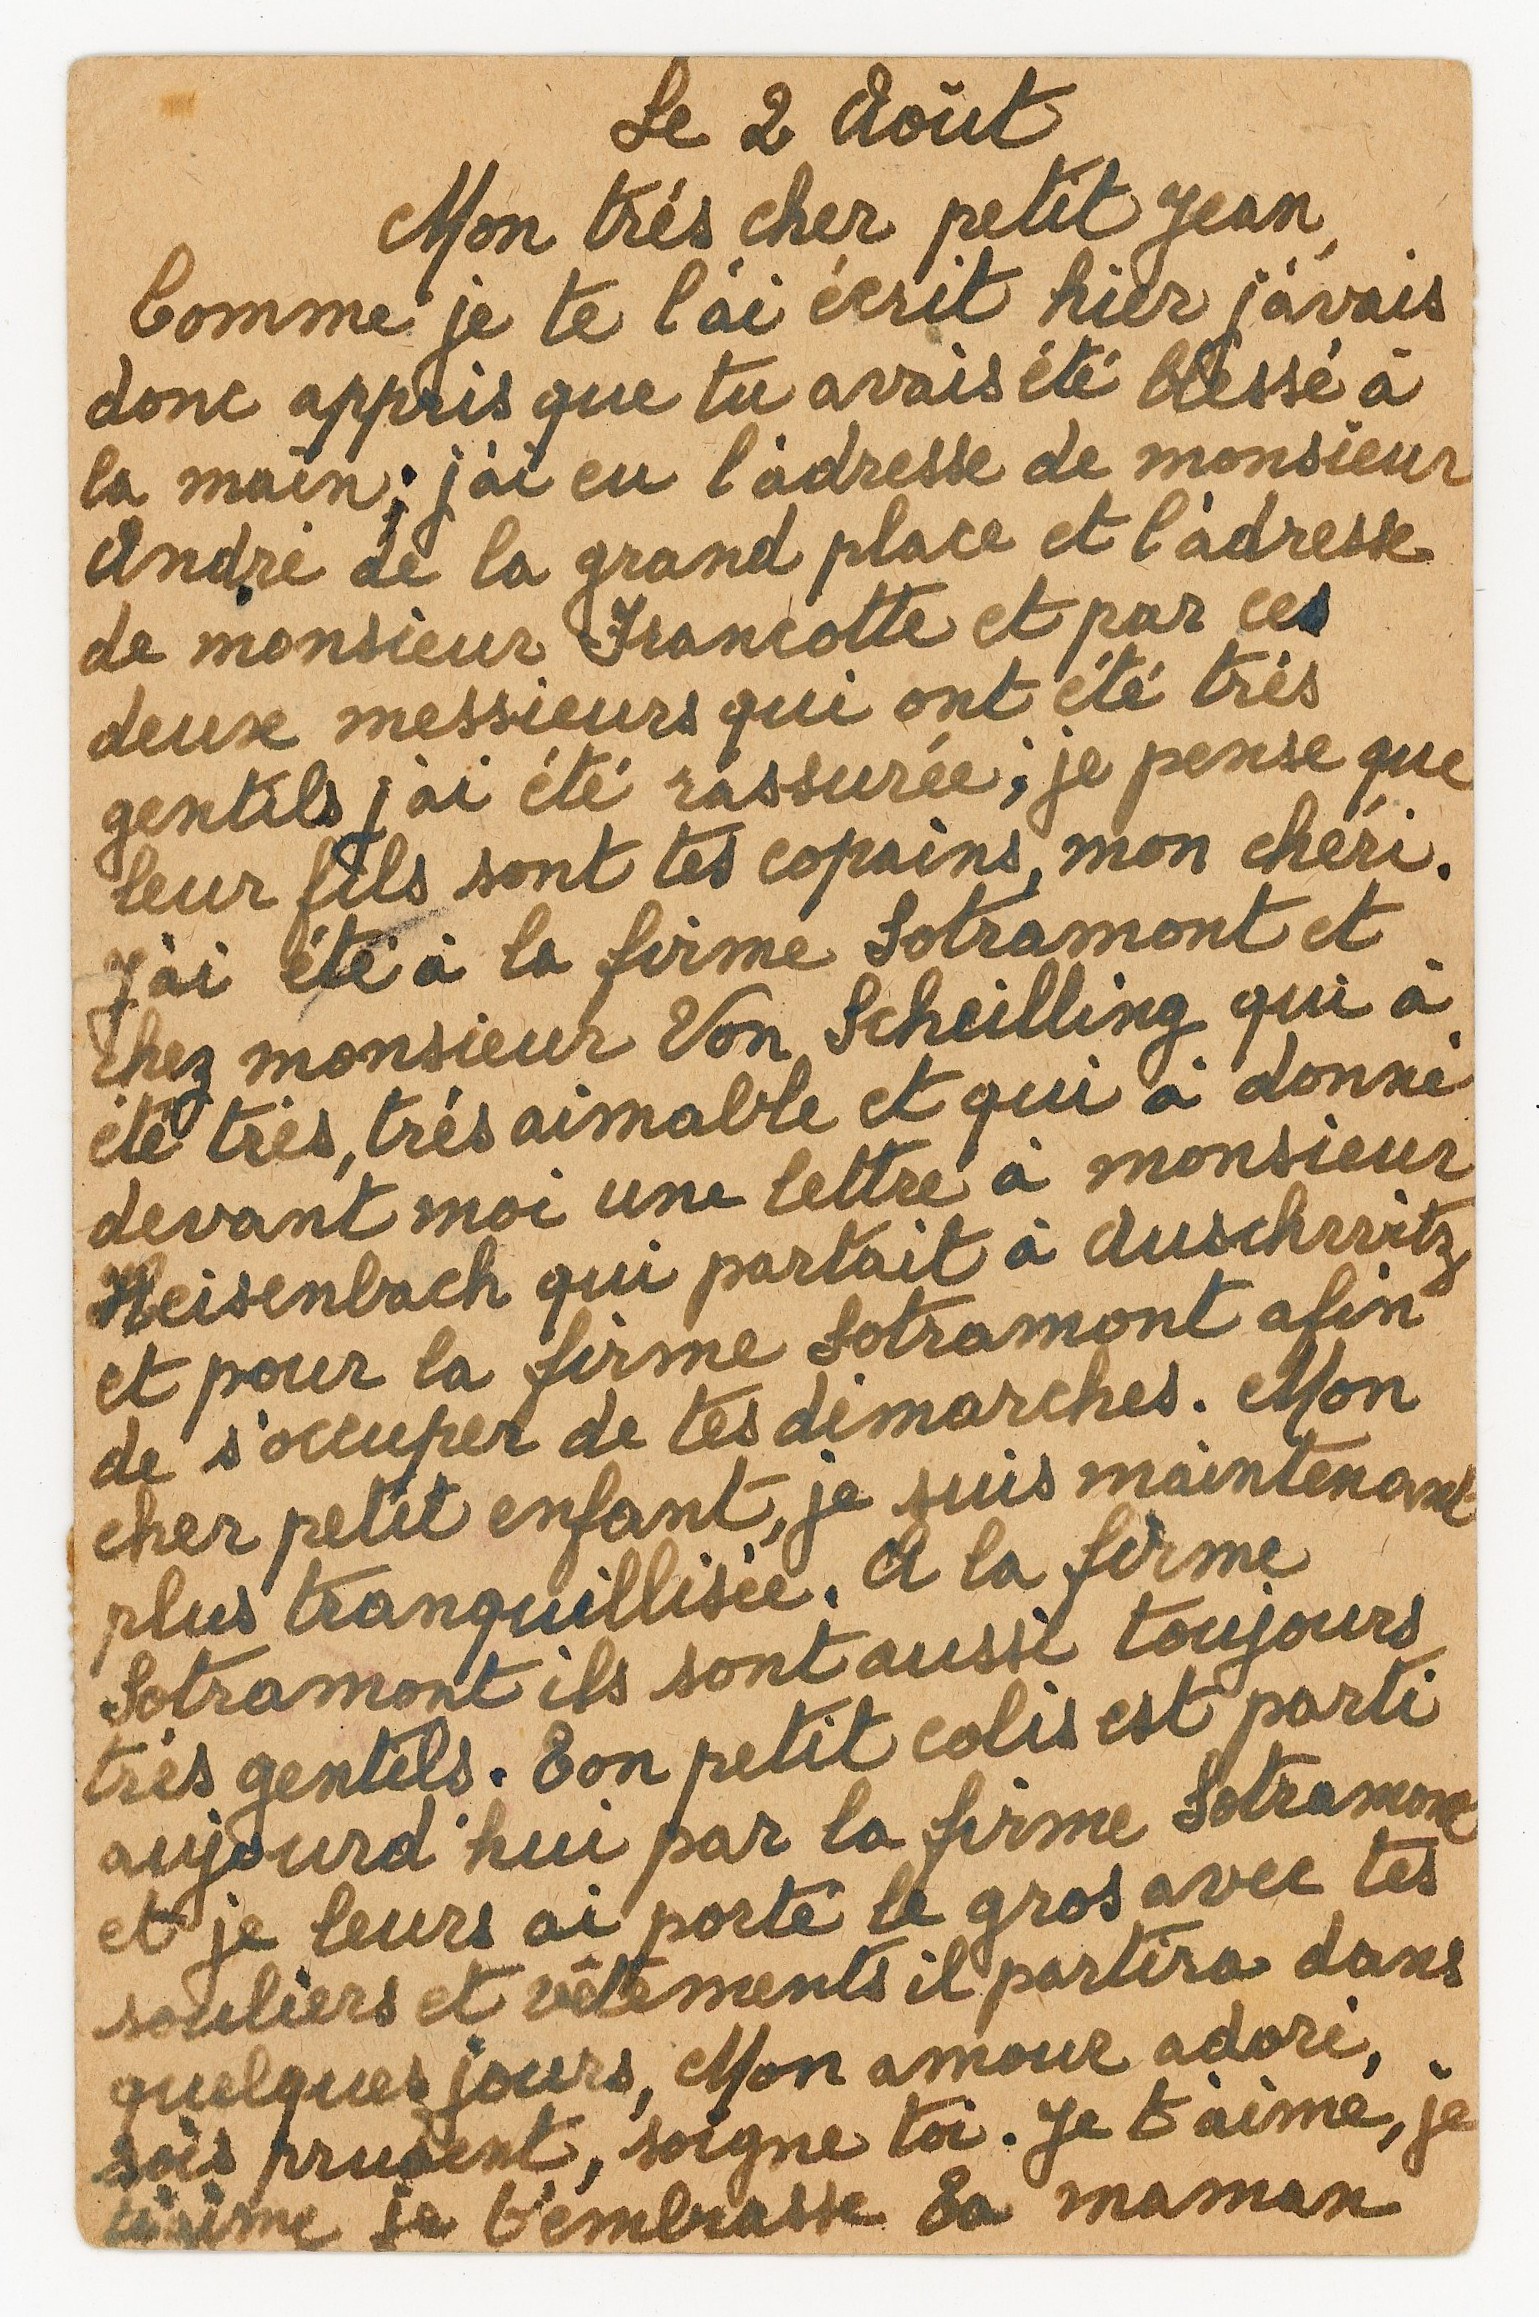 Le 2 Août
Mon trés cher petit Jean,
Comme je te l'ai écrit hier j'avais
donc appris que tu avais été blessé à
la main; j'ai eu l'adresse de monsieur
André de la grand place et l'adresse
de monsieur Francotte et par ces
deux messieurs qui ont été trés
gentils j'ai été rassurée; je pense que
leur fils sont tes copains, mon chéri.
J'ai été à la firme Sotramont et
chez monsieur Von Scheilling qui à
été trés, trés aimable et qui à donné
devant moi une lettre à monsieur
Heisenbach qui partait à Auschwitz
et pour la firme Sotramont afin
de s'occuper de tes démarches. Mon
cher petit enfant, je suis maintenant
plus tranquillisée. A la firme
Sotramont ils sont aussi toujours
trés gentils. Ton petit colis est parti
aujourd'hui par la firme Sotramont
et je leurs ai porté le gros avec tes
souliers et vêtements il partira dans
quelques jours, Mon amour adoré,
sois prudent, soigne toi. Je t'aime, je
t'aime je t'embrasse Ta maman